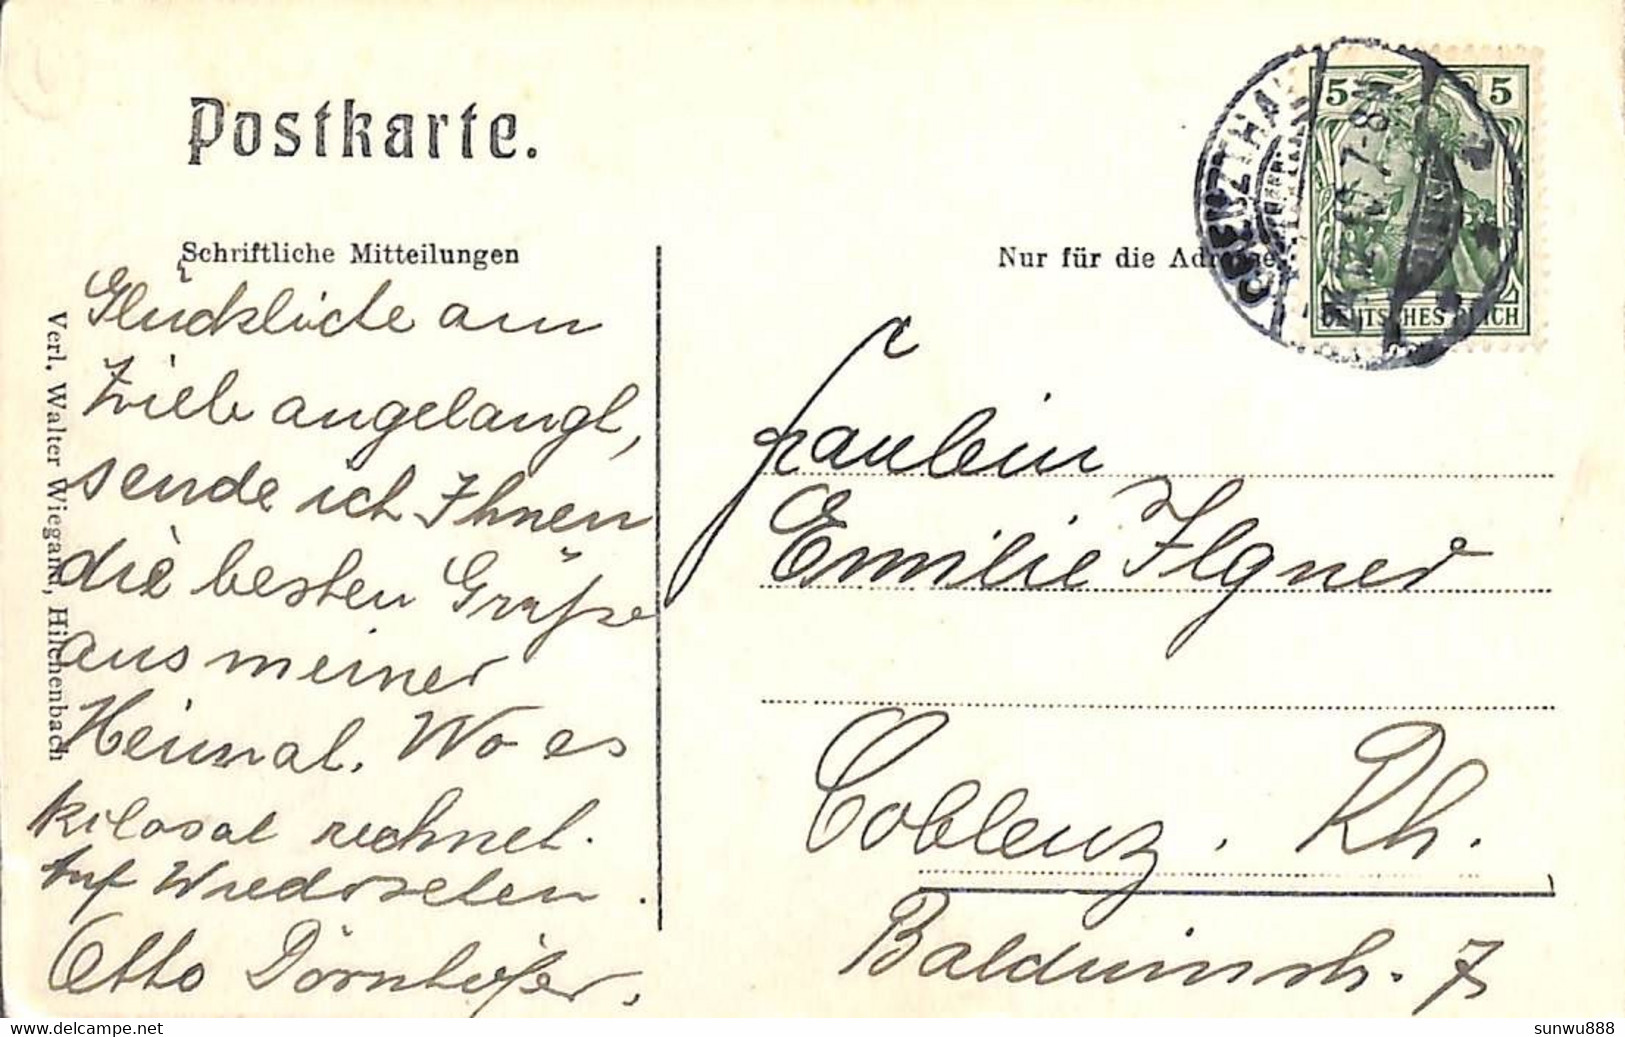 Postkarte.
Schriftliche Mitteilungen
Nur für die Adresse
Glückliche am
Ziele angelangt,
sende ich Ihnen
die besten Grüße
aus meiner
Heimat. Wo es
kolosal rechnet.
Auf Wiedersehen.
Otto Dörnhöfer.
Verl. Walter Wiegand, Hilchenbach
Fräulein
Emilie Ilgner
Coblenz. Rh.
Balduinstr. 7
CREUZTHAL
7-8N
5 5
DEUTSCHES REICH
sunwu888